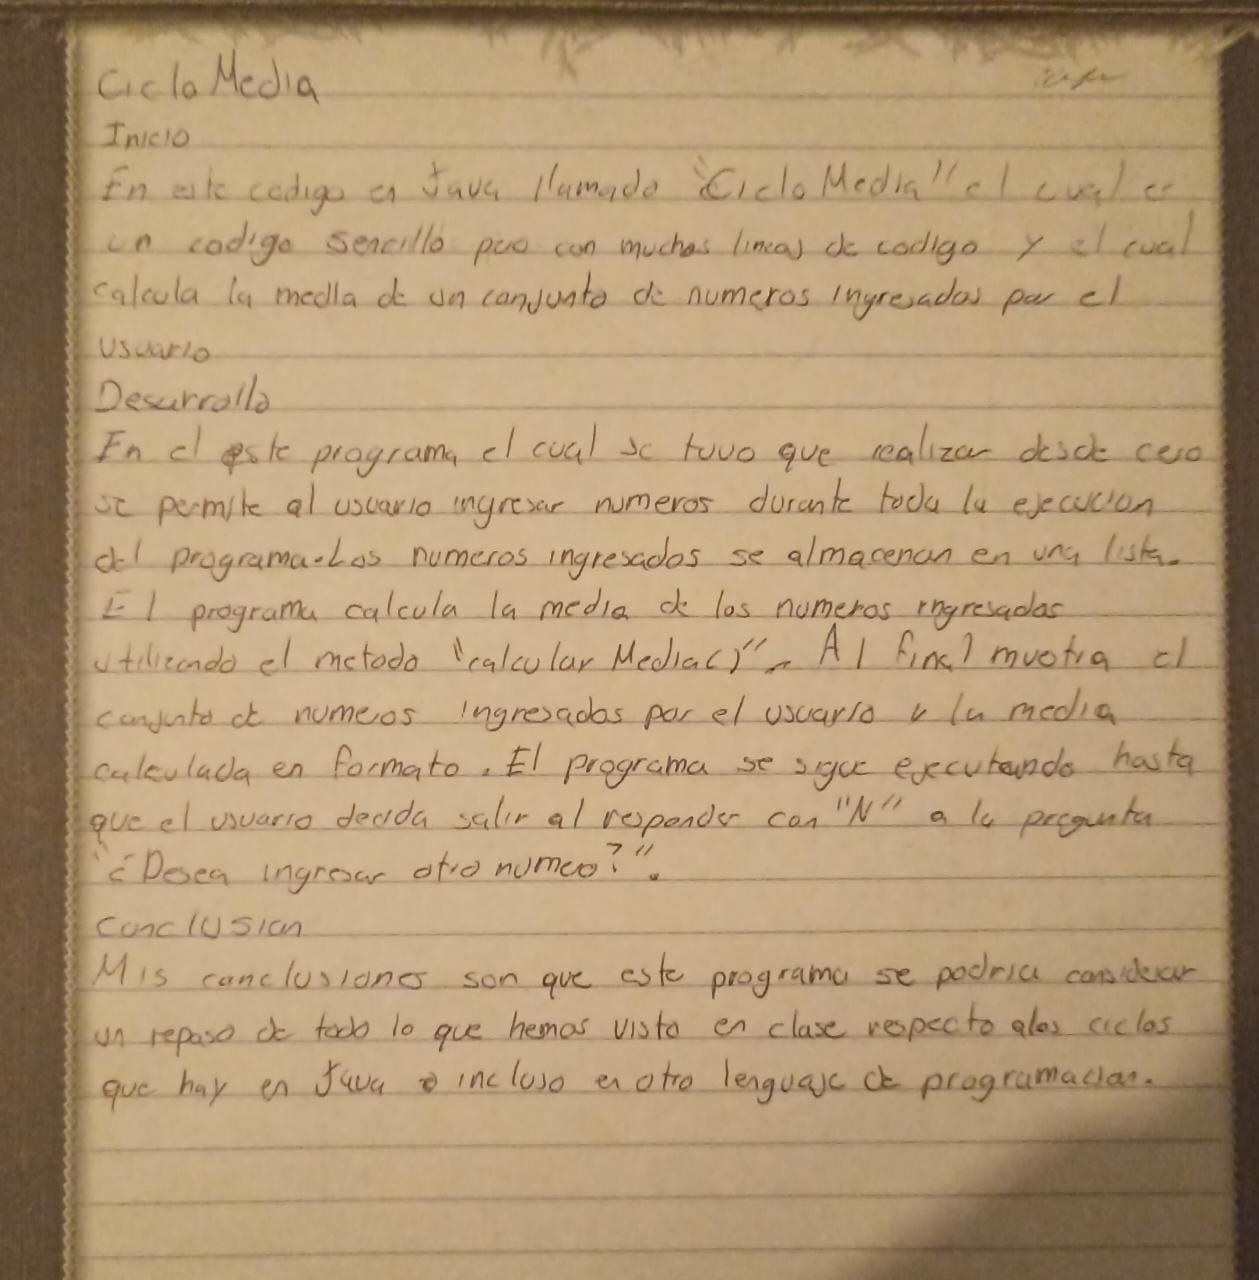 Ciclo Media
Inicio
En este codigo en Java llamado "Ciclo Media" el cual es
un codigo sencillo pero con muchas lineas de codigo y el cual
calcula la media de un conjunto de numeros ingresados por el
usuario
Desarrollo
En el este programa el cual se tuvo que realizar desde cero
se permite al usuario ingresar numeros durante toda la ejecucion
del programa. Los numeros ingresados se almacenan en una lista.
El programa calcula la media de los numeros ingresados
utilizando el metodo "calcular Media()". Al final muestra el
conjunto de numeros ingresados por el usuario y la media
calculada en formato. El programa se sigue ejecutando hasta
que el usuario decida salir al responder con "N" a la pregunta
"¿Desea ingresar otro numero?".
Conclusion
Mis conclusiones son que este programa se podria considerar
un repaso de todo lo que hemos visto en clase respecto a los ciclos
que hay en Java o incluso en otro lenguaje de programacion.